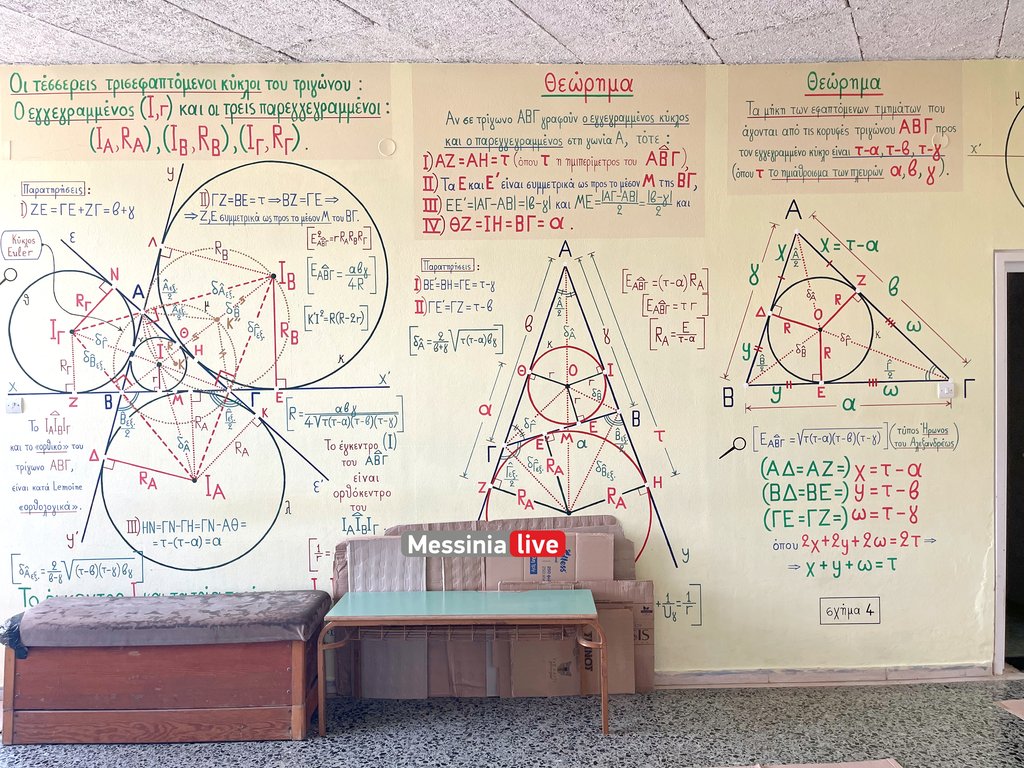 Οι τέσσερεις τρισεφαπτόμενοι κύκλοι του τριγώνου :
Ο εγγεγραμμένος (Ι,r) και οι τρείς παρεγγεγραμμένοι :
(I_A,R_A),(I_B,R_B),(I_Γ,R_Γ).
Παρατηρήσεις:
I) ΖΕ=ΓΕ+ΖΓ=β+γ
II) ΓΖ=ΒΕ=τ ⇒ ΒΖ=ΓΕ ⇒
⇒ Ζ,Ε συμμετρικά ως προς το μέσον Μ του ΒΓ.
Κύκλος
Euler
[E²_ΑΒΓ=r R_A R_B R_Γ]
[E_ΑΒΓ=αβγ/4R]
[KI²=R(R-2r)]
[R=αβγ/4√τ(τ-α)(τ-β)(τ-γ)]
Το I_A I_B I_Γ
και το «ορθικό» του
τρίγωνο ΑΒΓ,
είναι κατά Lemoine
«ορθολογικά».
Το έγκεντρο (Ι)
του ΑΒΓ
είναι
ορθόκεντρο
του
I_A I_B I_Γ
III) ΗΝ=ΓΝ-ΓΗ=ΓΝ-ΑΘ=
=τ-(τ-α)=α
[δ_Αεξ.=2/β-γ √(τ-β)(τ-γ)βγ]
Θεώρημα
Αν σε τρίγωνο ΑΒΓ γραφούν ο εγγεγραμμένος κύκλος
και ο παρεγγεγραμμένος στη γωνία Α, τότε :
I) ΑΖ=ΑΗ=τ (όπου τ η ημιπερίμετρος του ΑΒΓ)
II) Τα Ε και Ε' είναι συμμετρικά ως προς το μέσον Μ της ΒΓ,
III) ΕΕ'=|ΑΓ-ΑΒ|=|β-γ| και ΜΕ=|ΑΓ-ΑΒ|/2=|β-γ|/2 και
IV) ΘΖ=ΙΗ=ΒΓ=α.
Παρατηρήσεις:
I) ΒΕ'=ΒΗ=ΓΕ=τ-γ
II) ΓΕ'=ΓΖ=τ-β
[δ_Α=2/β+γ √τ(τ-α)βγ]
[E_ΑΒΓ=(τ-α)R_A]
[E_ΑΒΓ=τ r]
[R_A=E/τ-α]
Messinia live
Θεώρημα
Τα μήκη των εφαπτόμενων τμημάτων που
άγονται από τις κορυφές τριγώνου ΑΒΓ προς
τον εγγεγραμμένο κύκλο είναι τ-α, τ-β, τ-γ
(όπου τ το ημιάθροισμα των πλευρών α,β,γ).
x=τ-α
[E_ΑΒΓ=√τ(τ-α)(τ-β)(τ-γ)] (τύπος Ήρωνος
του Αλεξανδρέως)
(ΑΔ=ΑΖ=) x=τ-α
(ΒΔ=ΒΕ=) y=τ-β
(ΓΕ=ΓΖ=) ω=τ-γ
όπου 2x+2y+2ω=2τ ⇒
⇒ x+y+ω=τ
σχήμα 4